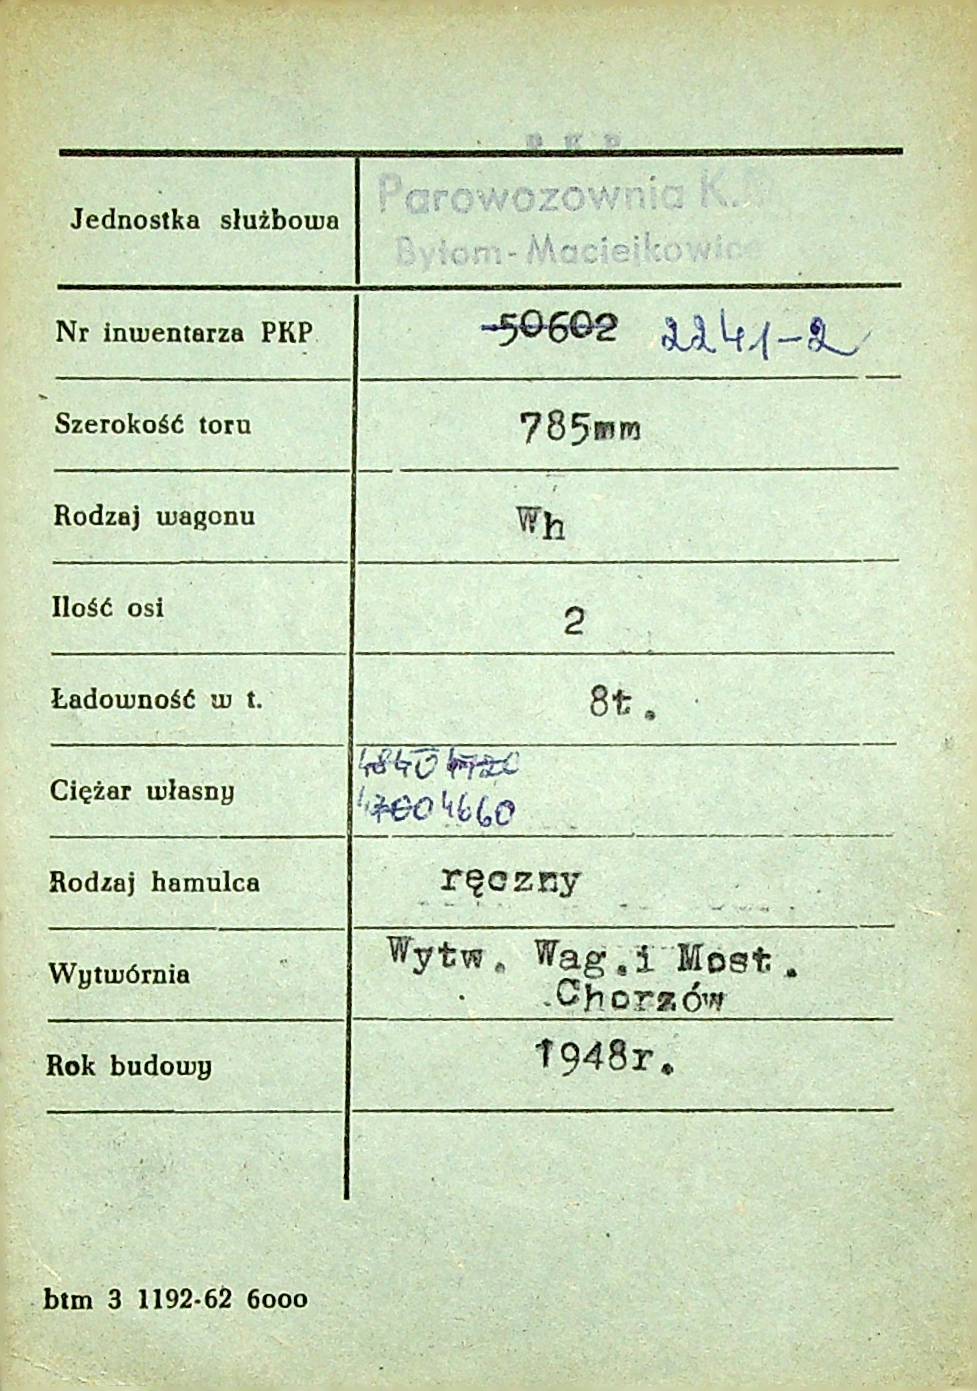 P K P
Jednostka służbowa Parowozownia K.
Bytom-Maciejkowice
Nr inwentarza PKP 50602 2241-2
Szerokość toru 785mm
Rodzaj wagonu Wh
Ilość osi 2
Ładowność w t. 8t.
4840 4720
Ciężar własny
4700 4660
Rodzaj hamulca ręczny
Wytwórnia Wytw. Wag.i Most.
Chorzów
Rok budowy 1948r.
btm 3 1192-62 6000